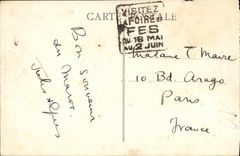 CARTE POSTALE
VISITEZ
LA FOIRE DE
FES
DU 16 MAI
AU 2 JUIN
Bon Souvenir
du Maroc
Madame T. Maire
10 Bd. Arago
Paris
France